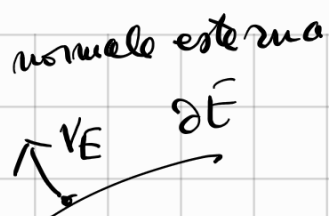 normale esterna
∂E
ν_E